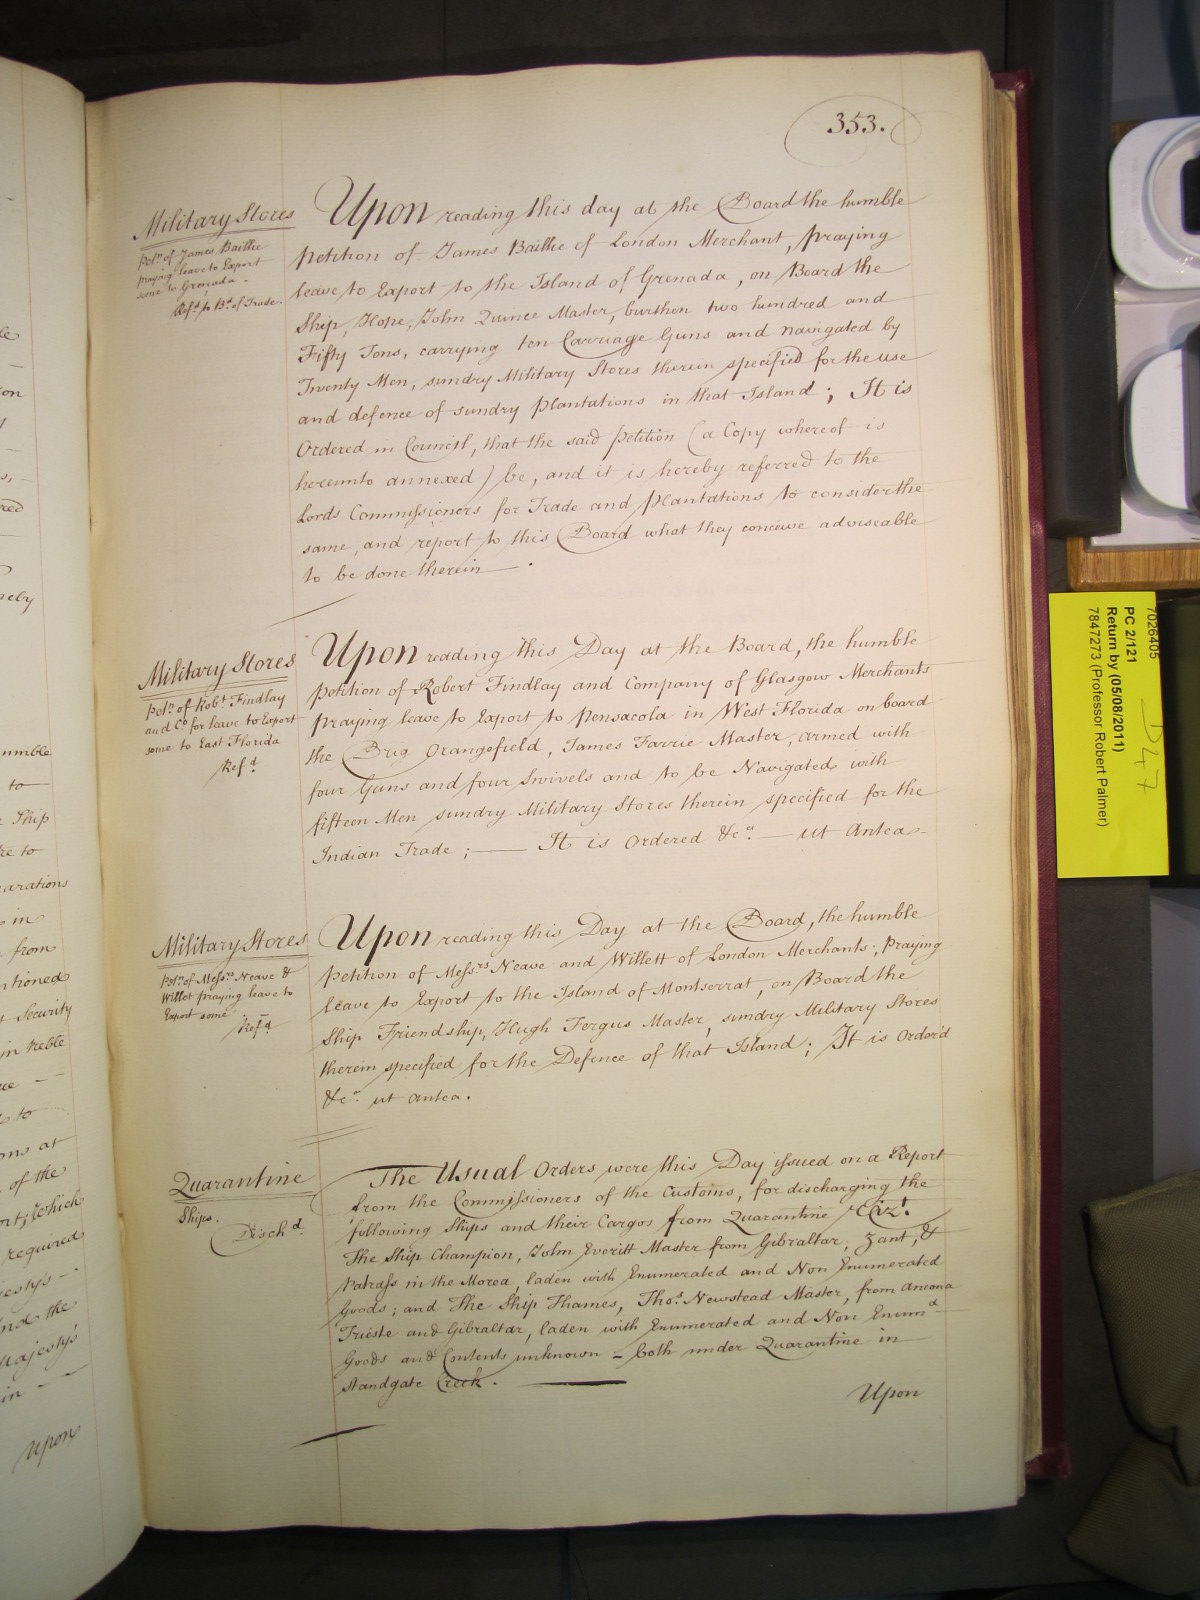 353.
Military Stores
Petn. of James Baillie
praying leave to Export
some to Grenada.
Refd. to Bd. of Trade.
Upon reading this day at the Board the humble
Petition of James Baillie of London Merchant, praying
leave to Export to the Island of Grenada, on Board the
Ship, Hope, John Quince Master, burthen two hundred and
Fifty Tons, carrying ten Carriage Guns and navigated by
Twenty Men, sundry Military Stores therein specified for the use
and defence of sundry Plantations in that Island; It is
Ordered in Council, that the said Petition (a Copy whereof is
hereunto annexed) be, and it is hereby referred to the
Lords Commissioners for Trade and Plantations to consider the
same, and report to this Board what they conceive adviseable
to be done therein.
Military Stores
Petn. of Robt. Findlay
and Co. for leave to Export
some to East Florida
Refd.
Upon reading this Day at the Board, the humble
Petition of Robert Findlay and Company of Glasgow Merchants
praying leave to Export to Pensacola in West Florida on board
the Brig Orangefield, James Farrie Master, armed with
four Guns and four Swivels and to be Navigated with
fifteen Men sundry Military Stores therein specified for the
Indian Trade; — It is Ordered &ca. — ut Antea
Military Stores
Petn. of Messrs. Neave &
Willet praying leave to
Export some
Refd.
Upon reading this Day at the Board, the humble
Petition of Messrs. Neave and Willett of London Merchants; praying
leave to Export to the Island of Montserrat, on Board the
Ship Friendship, Hugh Fergus Master, sundry Military Stores
therein specified for the Defence of that Island; It is Order'd
&ca. ut antea.
Quarantine
Ships.
Dischd.
The Usual Orders were this Day issued on a Report
from the Commissioners of the Customs, for discharging the
following Ships and their Cargos from Quarantine Vizt.
The Ship Champion, John Everitt Master from Gibraltar, Zant, &
Patrass in the Morea, laden with Enumerated and Non Enumerated
Goods; and The Ship Thames, Thos. Newstead Master, from Ancona
Trieste and Gibraltar, laden with Enumerated and Non Enumd.
Goods and Contents unknown – both under Quarantine in
Standgate Creek.
Upon
7026405
PC 2/121
Return by (05/08/2011)
7847273 (Professor Robert Palmer)
D47
on
humble
to
Ship
to
in
from
Security
to
at
of the
which
required
the
Majesty's
in
Upon